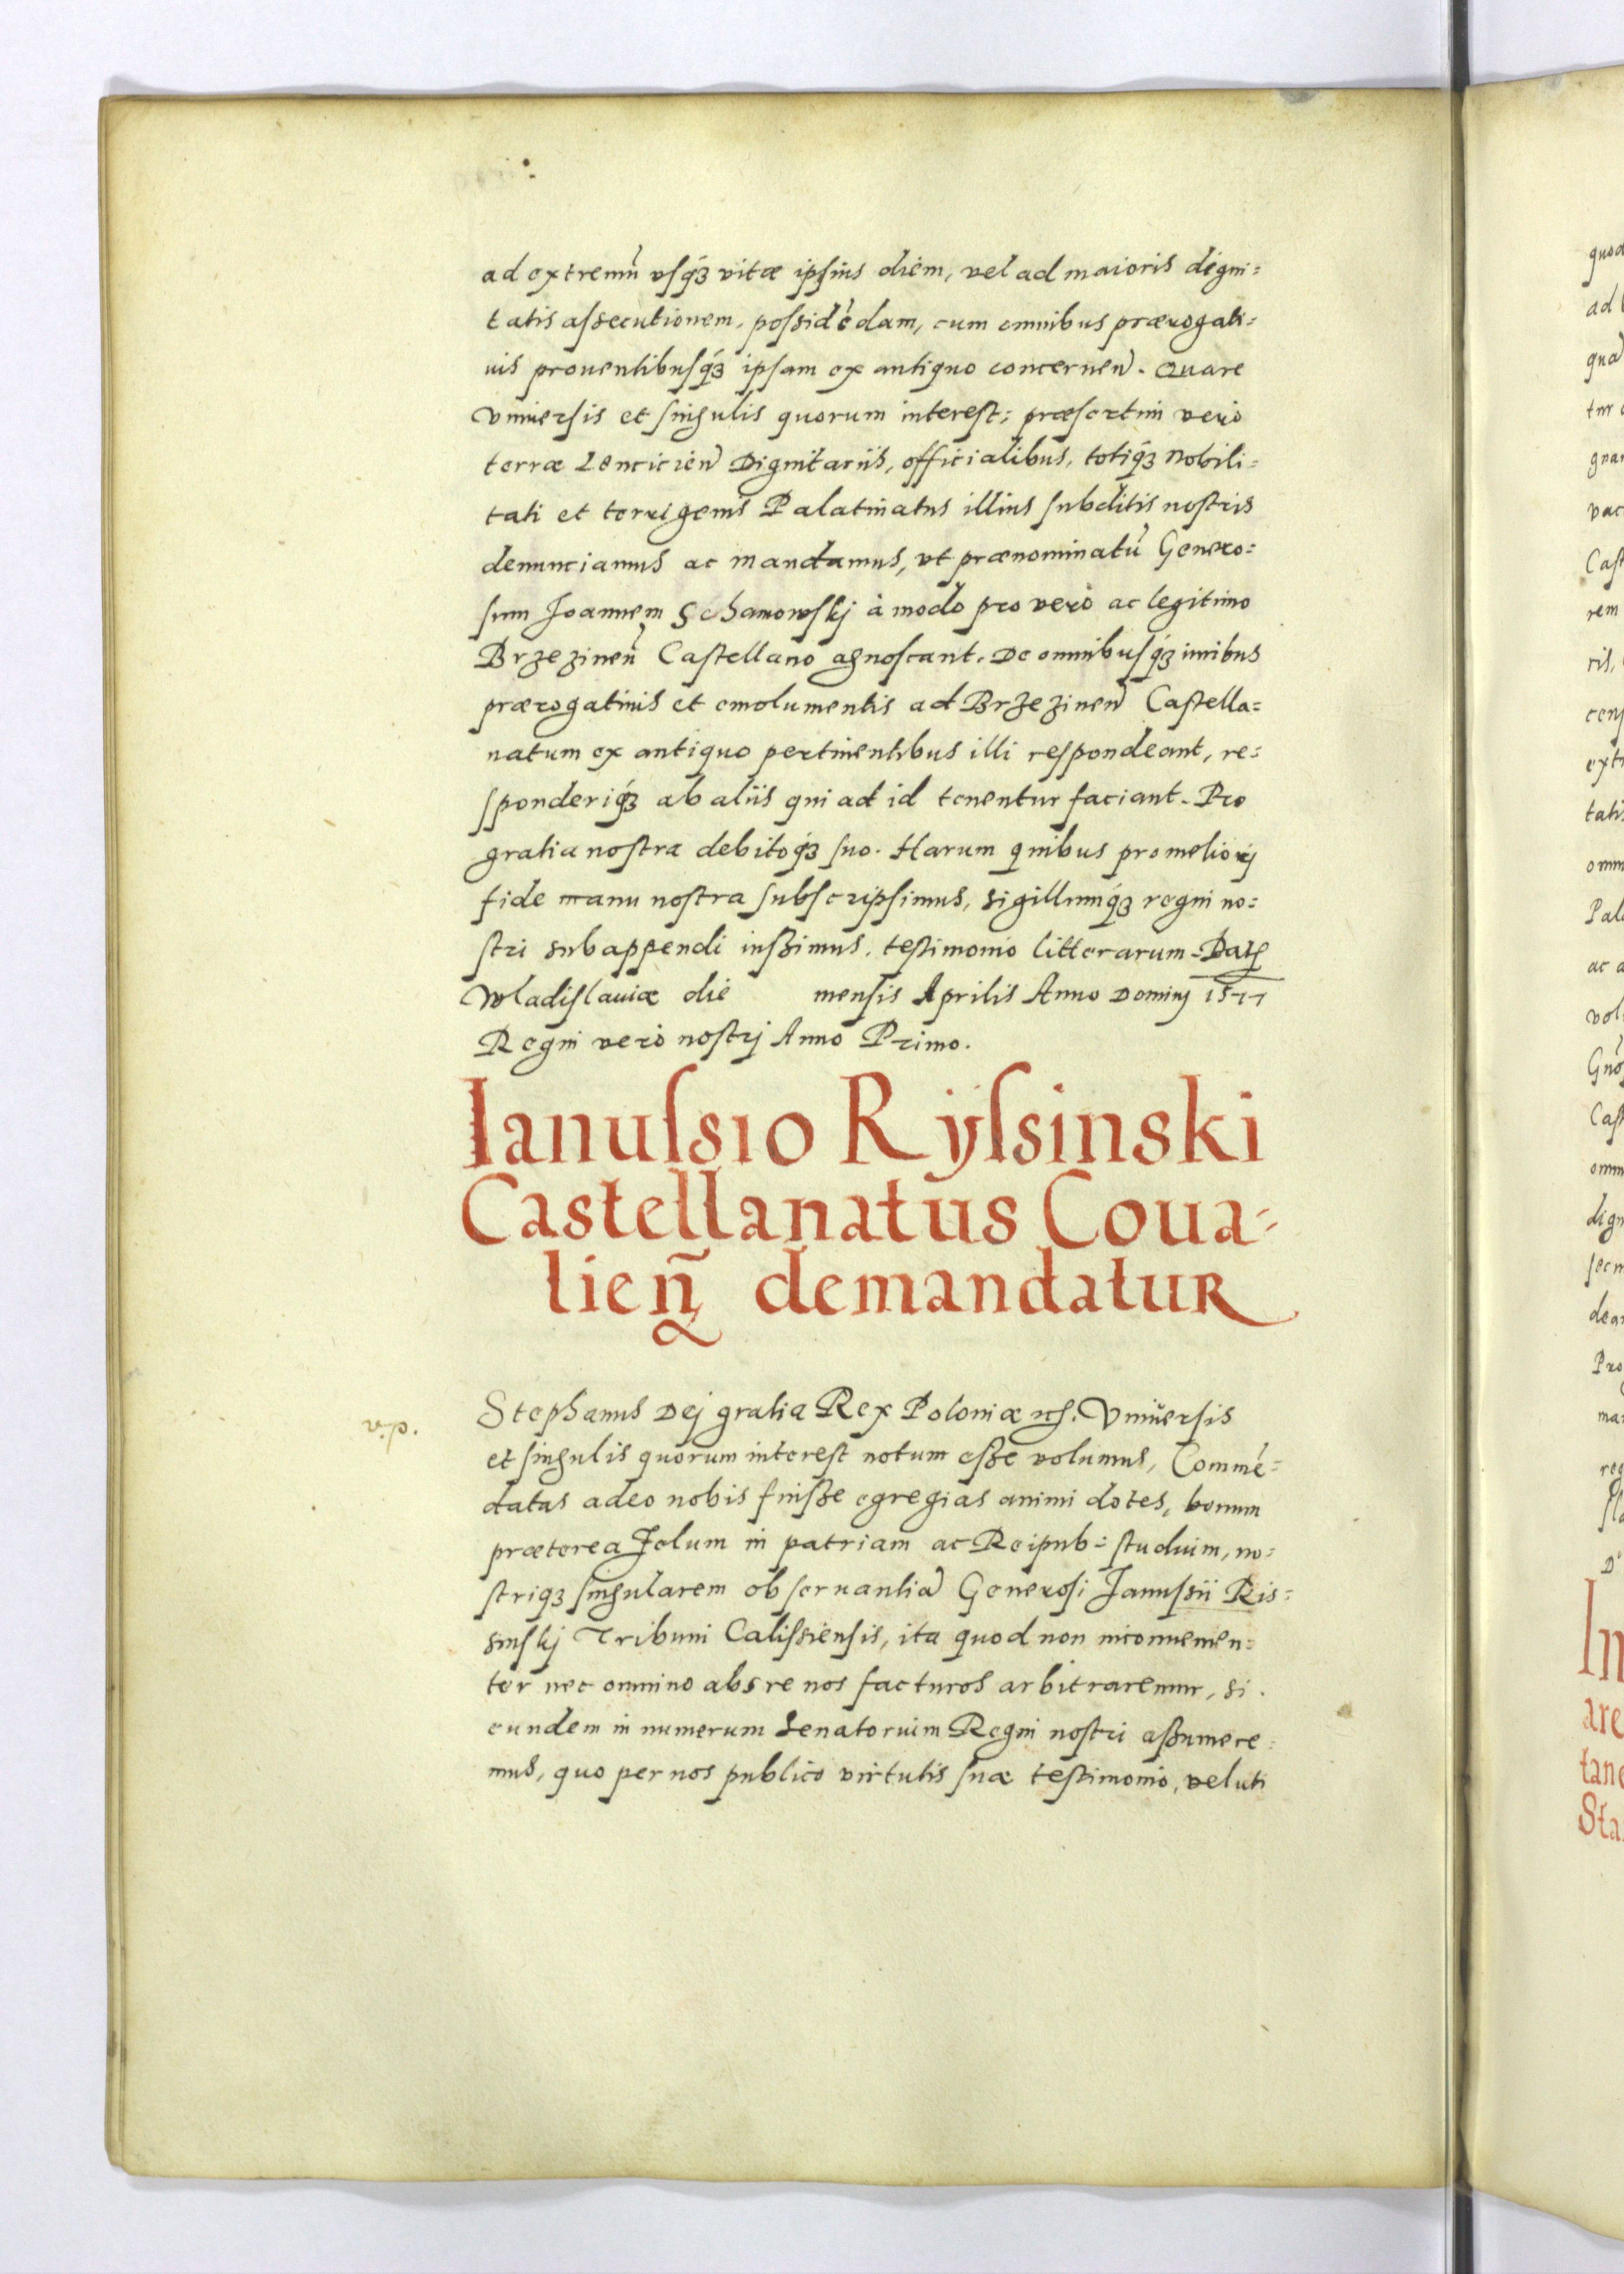 ad extremũ vsq́ꝫ vitæ ipsius diem, vel ad maioris digni=
tatis assecutionem, possidẽdam, cum omnibus prærogati=
uis prouentibusq́ꝫ ipsam ex antiquo concernen̄. Quare
Vniuersis et singulis quorum interest: præsertim verò
terræ Lencicien̄ Dignitariis, officialibus, totiq́ꝫ Nobili=
tati et terrigenis Palatinatus illius subditis nostris
denunciamus ac mandamus, vt prænominatũ Genero=
sum Joannem Schanowskj à modo pro verò ac legitimo
Brzezinen̄ Castellano agnoscant. De omnibusq́ꝫ iuribus
prærogatiuis et emolumentis ad Brzezinen̄ Castella=
natum ex antiquo pertinentibus illi respondeant, re=
sponderiq́ꝫ ab aliis qui ad id tenentur faciant. Pro
gratia nostra debitoq́ꝫ suo. Harum quibus pro meliorj
fide manu nostra subscripsimus, sigillumq́ꝫ regni no=
stri subappendi iussimus, testimonio litterarum. Datꝭ
Wladislauiæ die mensis Aprilis Anno Dominj 1577
Regni verò nostrj Anno Primo.
Ianussio Rÿssinski
Castellanatus Coua=
lien̄ demandatur
v. p.
Stephanus Dej gratia Rex Poloniæ ꝛcꝭ. Vniuersis
et singulis quorum interest notum esse volumus, Commẽ=
datas adeo nobis fuisse egregias animi dotes, bonum
præterea Zelum in patriam ac Reipub= studium, no=
striqꝫ singularem obseruantiã Generosi Janussii Ris=
sinskj Tribuni Calissiensis, ita quod non inconuenien=
ter nec omnino abs re nos facturos arbitraremur, si
eundem in numerum Senatorum Regni nostri assumere=
mus, quo per nos publico virtutis suæ testimonio, veluti